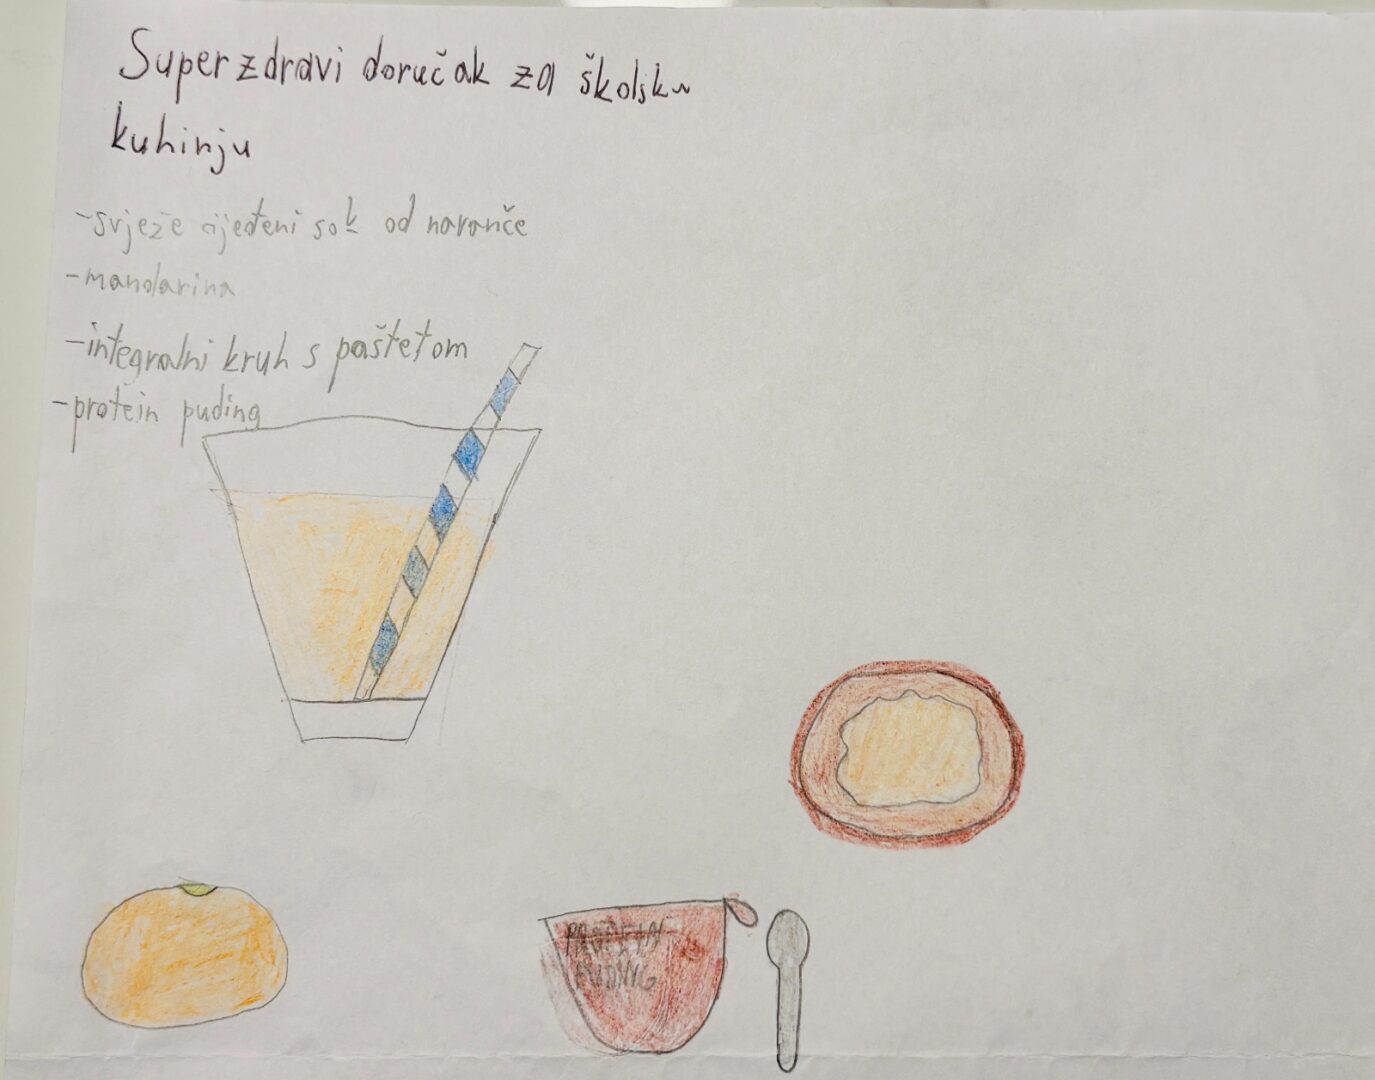 Superzdravi doručak za školsku
kuhinju
-svježe cijeđeni sok od naranče
-mandarina
-integralni kruh s paštetom
-protein puding
PROTEIN
PUDING